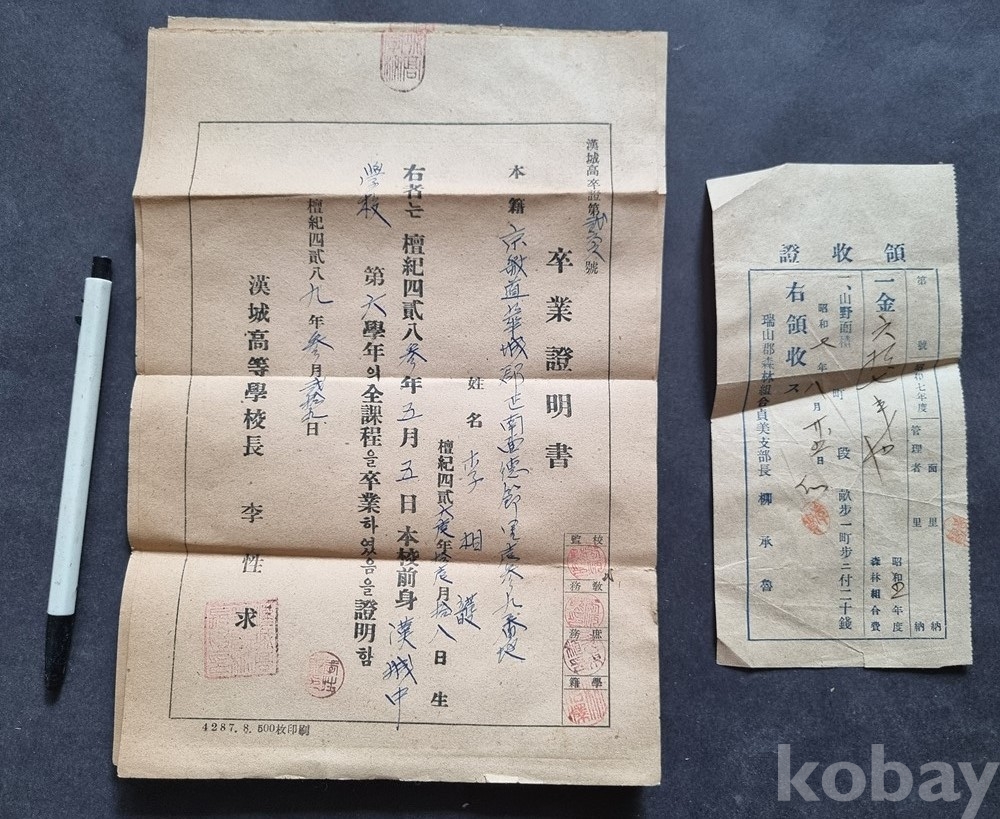 漢城高卒證第 號
卒業證明書
本籍 京畿道華城郡正南面德節里 番地
姓名 李相
檀紀四貳 年 月拾八日生
右者는 檀紀四貳八參年五月五日本校前身漢城中
學校 第六學年의全課程을卒業하였음을證明함
檀紀四貳八九年參月貳拾九日
漢城高等學校長 李性求
校監 敎務 庶務 學籍
4287.8.500枚印刷
領收證
第 號 昭和七年度 管理者 面 里 里 納 納
一金六拾 昭和 年度 森林組合費
一、山野面積 町 段 畝步一町步ニ付二十錢
右領收ス
昭和 年八月廿五日
瑞山郡森林組合貞美支部長 柳承魯
kobay